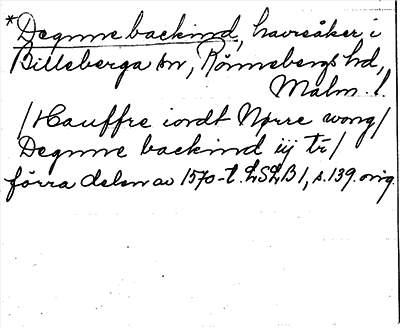 *Degnne backind, havreåker i
Billeberga sn, Rönnebergs hd,
Malm. l.
/Hauffre iordt Nørre wong/
Degnne backind iij tr/
förra delen av 1570-t. LSLB 1, s. 139. orig.